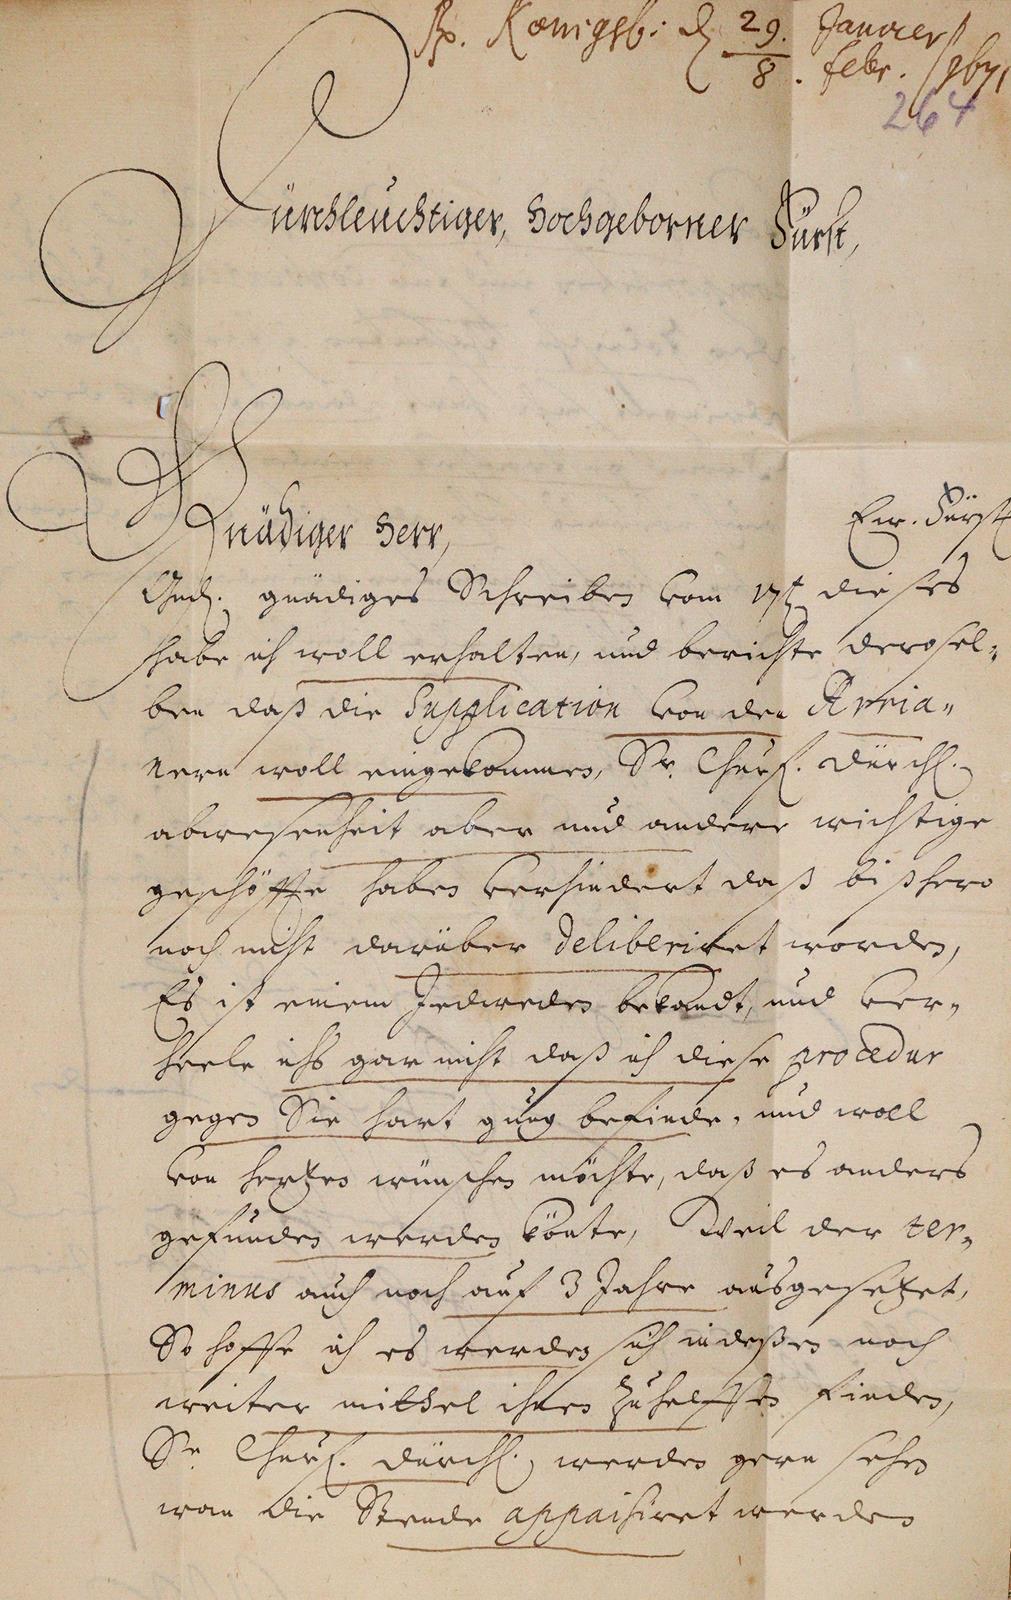 Px. Königsb: d. 29. Janvier
8. febr. 1671
264
Dürchleuchtiger, Hochgeborner Fürst,
Gnädiger Herr,
Ew. Fürstl
Gnd. gnädiges Schreiben vom 17t dieses
habe ich woll erhalten, und berichte derosel-
ben daß die Supplication von den Arria-
nern woll eingekommen, Sr. Churf. Dürchl.
abwesenheit aber und andere wichtige
geschöffte haben verhindert daß bißhero
noch nicht darüber deliberiret worden,
Es ist einem Jedweden bekandt, und ver-
heele ichs gar nicht daß ich diese procedur
gegen Sie hart gnug befinde, und woll
von hertzen wünschen möchte, daß es anders
gefunden werden könte, Weil der ter-
minus auch noch auf 3 Jahre ausgesetzet,
So hoffe ich es werden sich indeßen noch
weiter mittel ihnen zuhelffen finden,
Sr. Churf. Dürchl. werden gern sehen
wan die Stende appaisiret werden